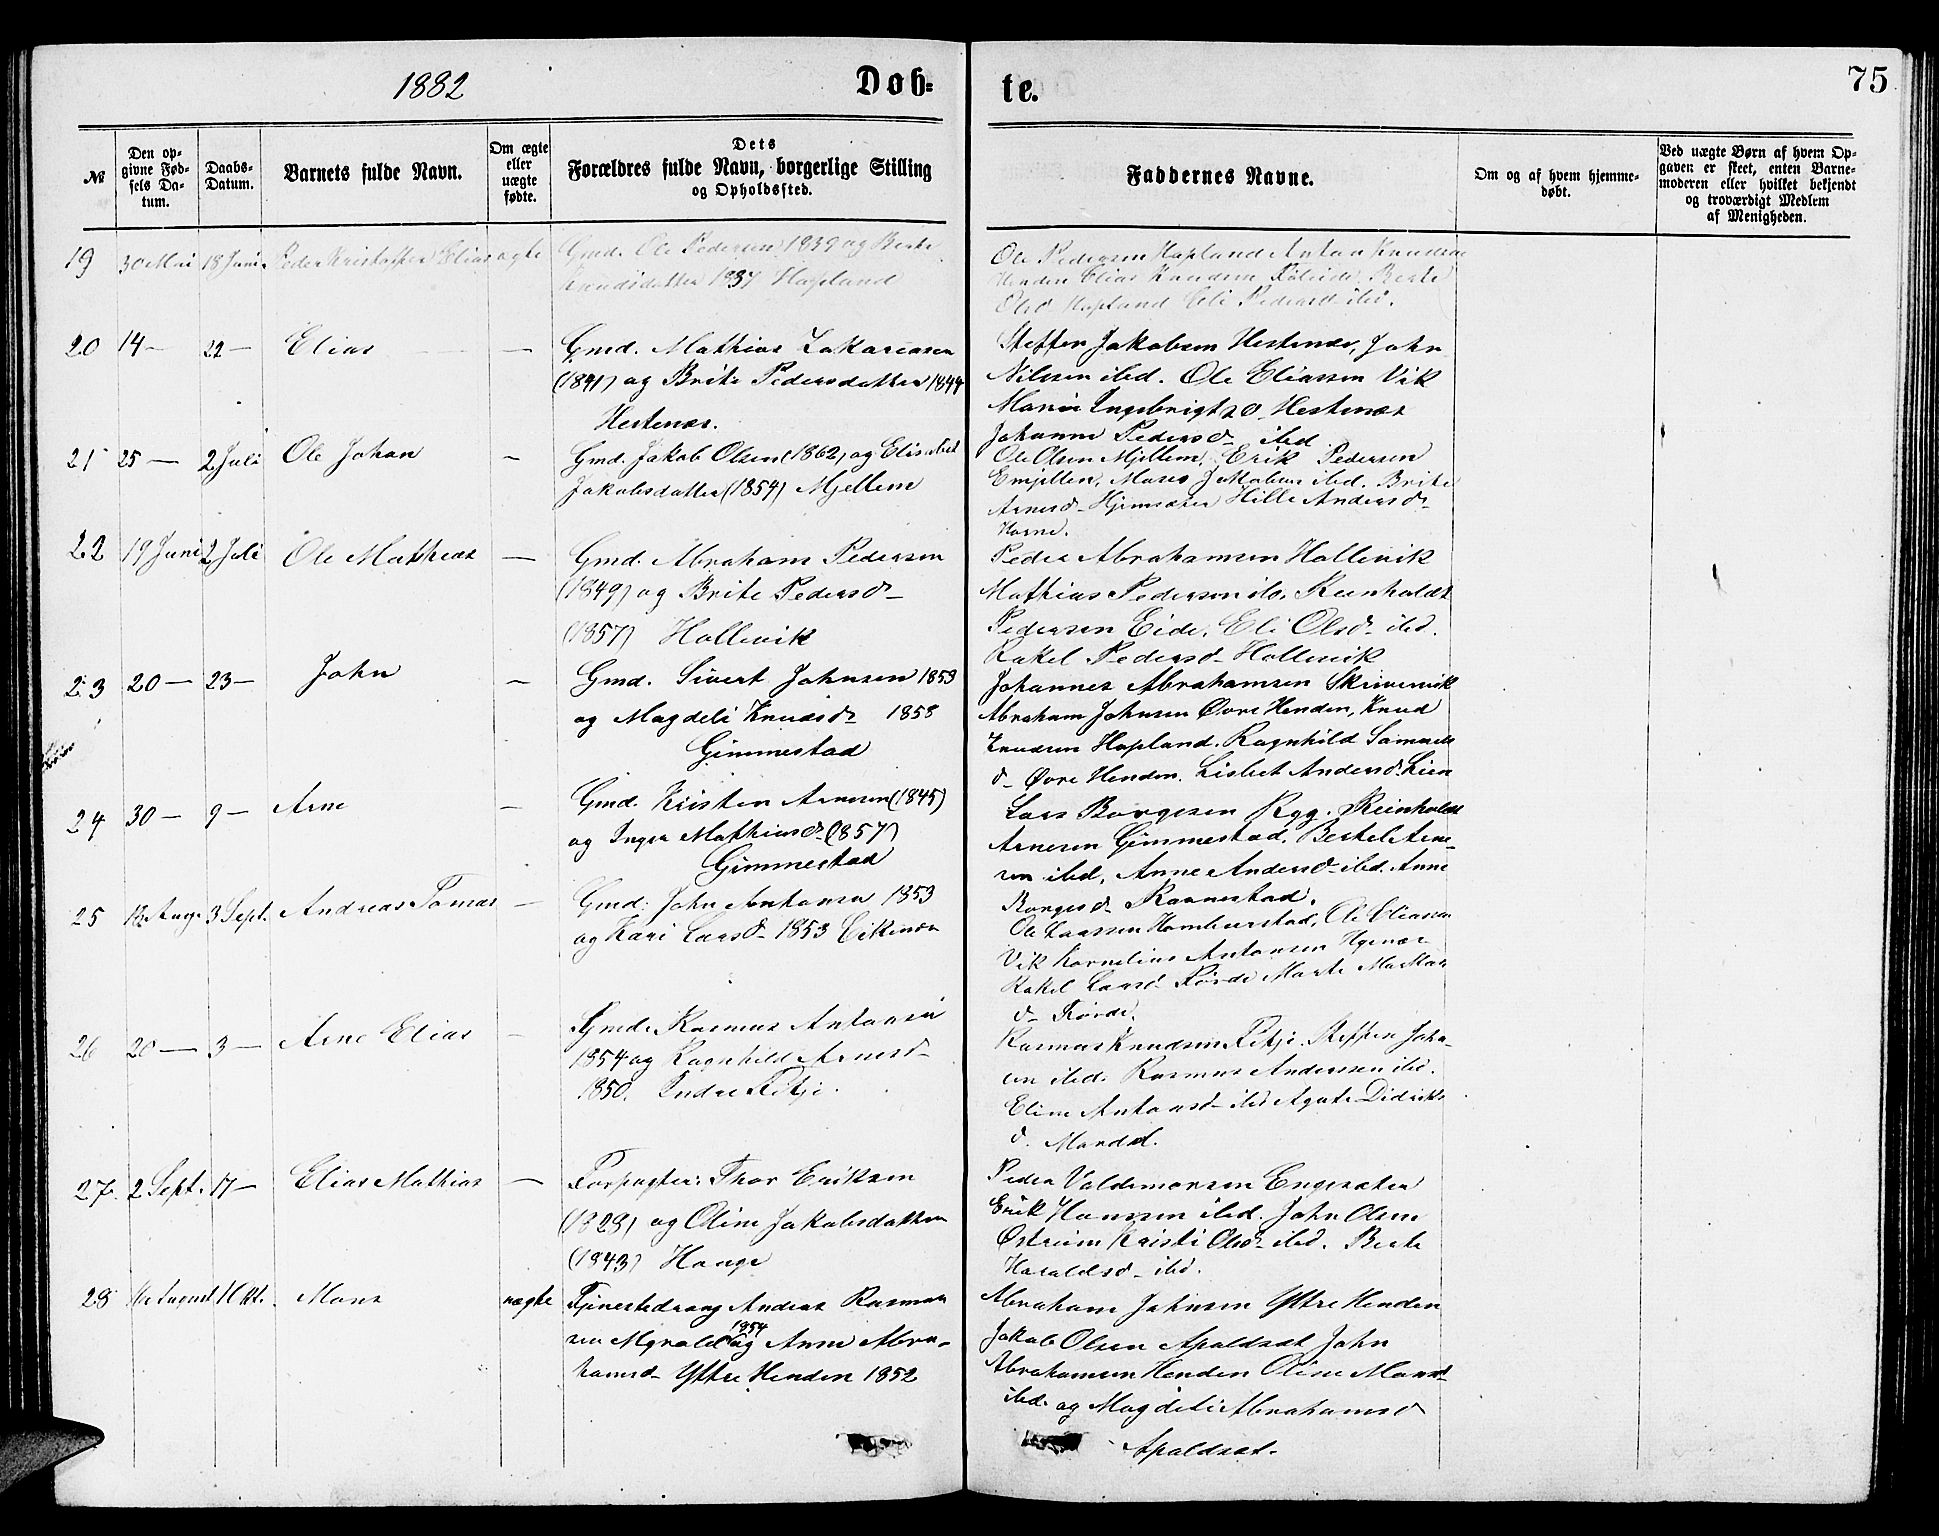 1882
Døb=
te.
75
№
Den op-
givne Fød-
sels Da-
tum.
Daabs-
Datum.
Barnets fulde Navn.
Om ægte
eller
uægte
fødte.
Dets
Forældres fulde Navn, borgerlige Stilling
og Opholdssted.
Faddernes Navne.
Om og af hvem hjemme-
døbt.
Ved uægte Børn af hvem Op-
gaven er skeet, enten Barne-
moderen eller hvilket bekjendt
og troværdigt Medlem
af Menigheden.
19 30 Mai 18 Juni Peder Kristoffer Elias ægte
Gmd. Ole Pedersen 1839 og Berte
Knudsdatter 1837 Hopland
Ole Pedersen Hopland Anton Knudsen
Henden Elias Knudsen Berte
Olsd Hopland Eli Pedersd ibd.
20 14 — 22 — Elias —
Gmd. Mathias Zakariasen
(1841) og Brite Pedersdatter 1844
Hestenæs.
Steffen Jakobsen Hestenæs, John
Nilssen ibd. Ole Eliassen Vik
Marie Ingebrigtsd Hestenæs
Johanne Pedersd ibd
21 25 — 2 Juli Ole Johan —
Gmd. Jakob Olsen (1862) og Elisabet
Jakobsdatter (1854) Mjellem
Ole Olsen Mjellem, Erik Pedersen
Emjellen, Mons Jakobsen ibd. Brite
Arnesd Hjemsæter Hille Andersd
Horne.
22 19 Juni 2 Juli Ole Mathias —
Gmd. Abraham Pedersen
(1849) og Brite Pedersd
(1857) Hollevik
Peder Abrahamsen Hollevik
Mathias Pedersen ib. Reinholdt
Pedersen Eide, Eli Olsd ibd.
Rakel Pedersd Hollevik
23 20 — 23 — John —
Gmd. Sivert Johnsen 1853
og Magdeli Knudsd 1858
Gimmestad
Johannes Abrahamsen Skrivervik
Abraham Johnsen Øvre Henden, Knud
Knudsen Hopland. Ragnhild Samuels
d Øvre Henden. Lisbet Andersd Lien
24 30 — 9 — Arne —
Gmd. Kristen Arnesen (1845)
og Inger Mathiasd (1857)
Gimmestad
Lars Børgesen Ryg. Reinholdt
Arnesen Gimmestad, Bertel Arne-
sen ibd. Anne Andersd ibd. Anne
Børgesd Ravnestad.
25 12 Aug. 3 Sept. Andreas Tomas —
Gmd. John Antonsen 1853
og Kari Larsd 1853 Eikenæs
Ole Larssen Hamburstad, Ole Eliassen
Vik Kornelius Antonsen
Rakel Larsd Førde Marte
d Førde.
26 20 — 3 — Arne Elias —
Gmd. Rasmus Antonsen
1854 og Ragnhild Arnesd
1850. Indre Fitje.
Rasmus Knudsen Fitje. Steffen John-
sen ibd. Rasmus Anderssen ibd.
Eline Antonsd ibd Agate Didriks
d. Mardal.
27. 2 Sept. 17 — Elias Mathias —
Forpagter: Thor Eriksen
(1828) og Oline Jakobsdatter
(1843) Hauge
Peder Valdemarsen Engesæter
Erik Hanssen ibd. John Olsen
Østreim Kristi Olsd ibd. Berte
Haraldsd ibd.
28 August 1 Okt. Mons uægte
Tjenestedreng Andreas Rasmus
sen Myrold 1854 og Anne Abra-
hamsd Yttre Henden 1852
Abraham Johnsen Yttre Henden
Jakob Olsen Apaldsæt John
Abrahamsen Henden Oline Monsd
ibd. og Magdeli Abrahamsd
Apaldsæt.